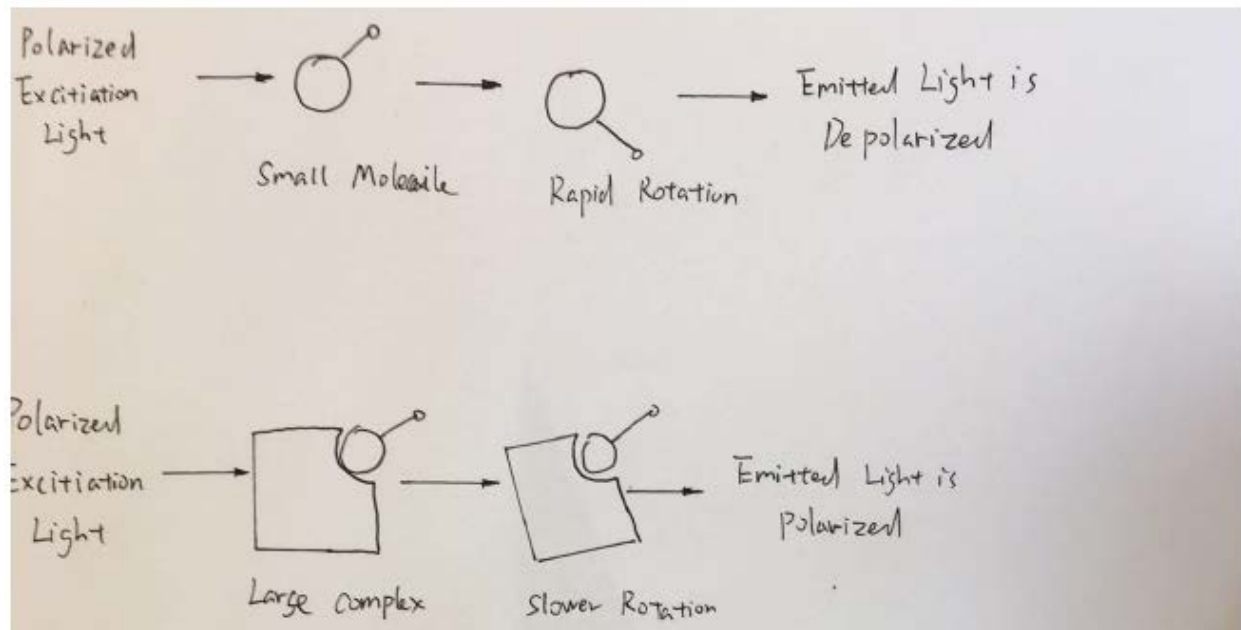 Polarized
Excitiation
Light
Small Molecule
Rapid Rotation
Emitted Light is
Depolarized
Polarized
Excitiation
Light
Large Complex
Slower Rotation
Emitted Light is
polarized